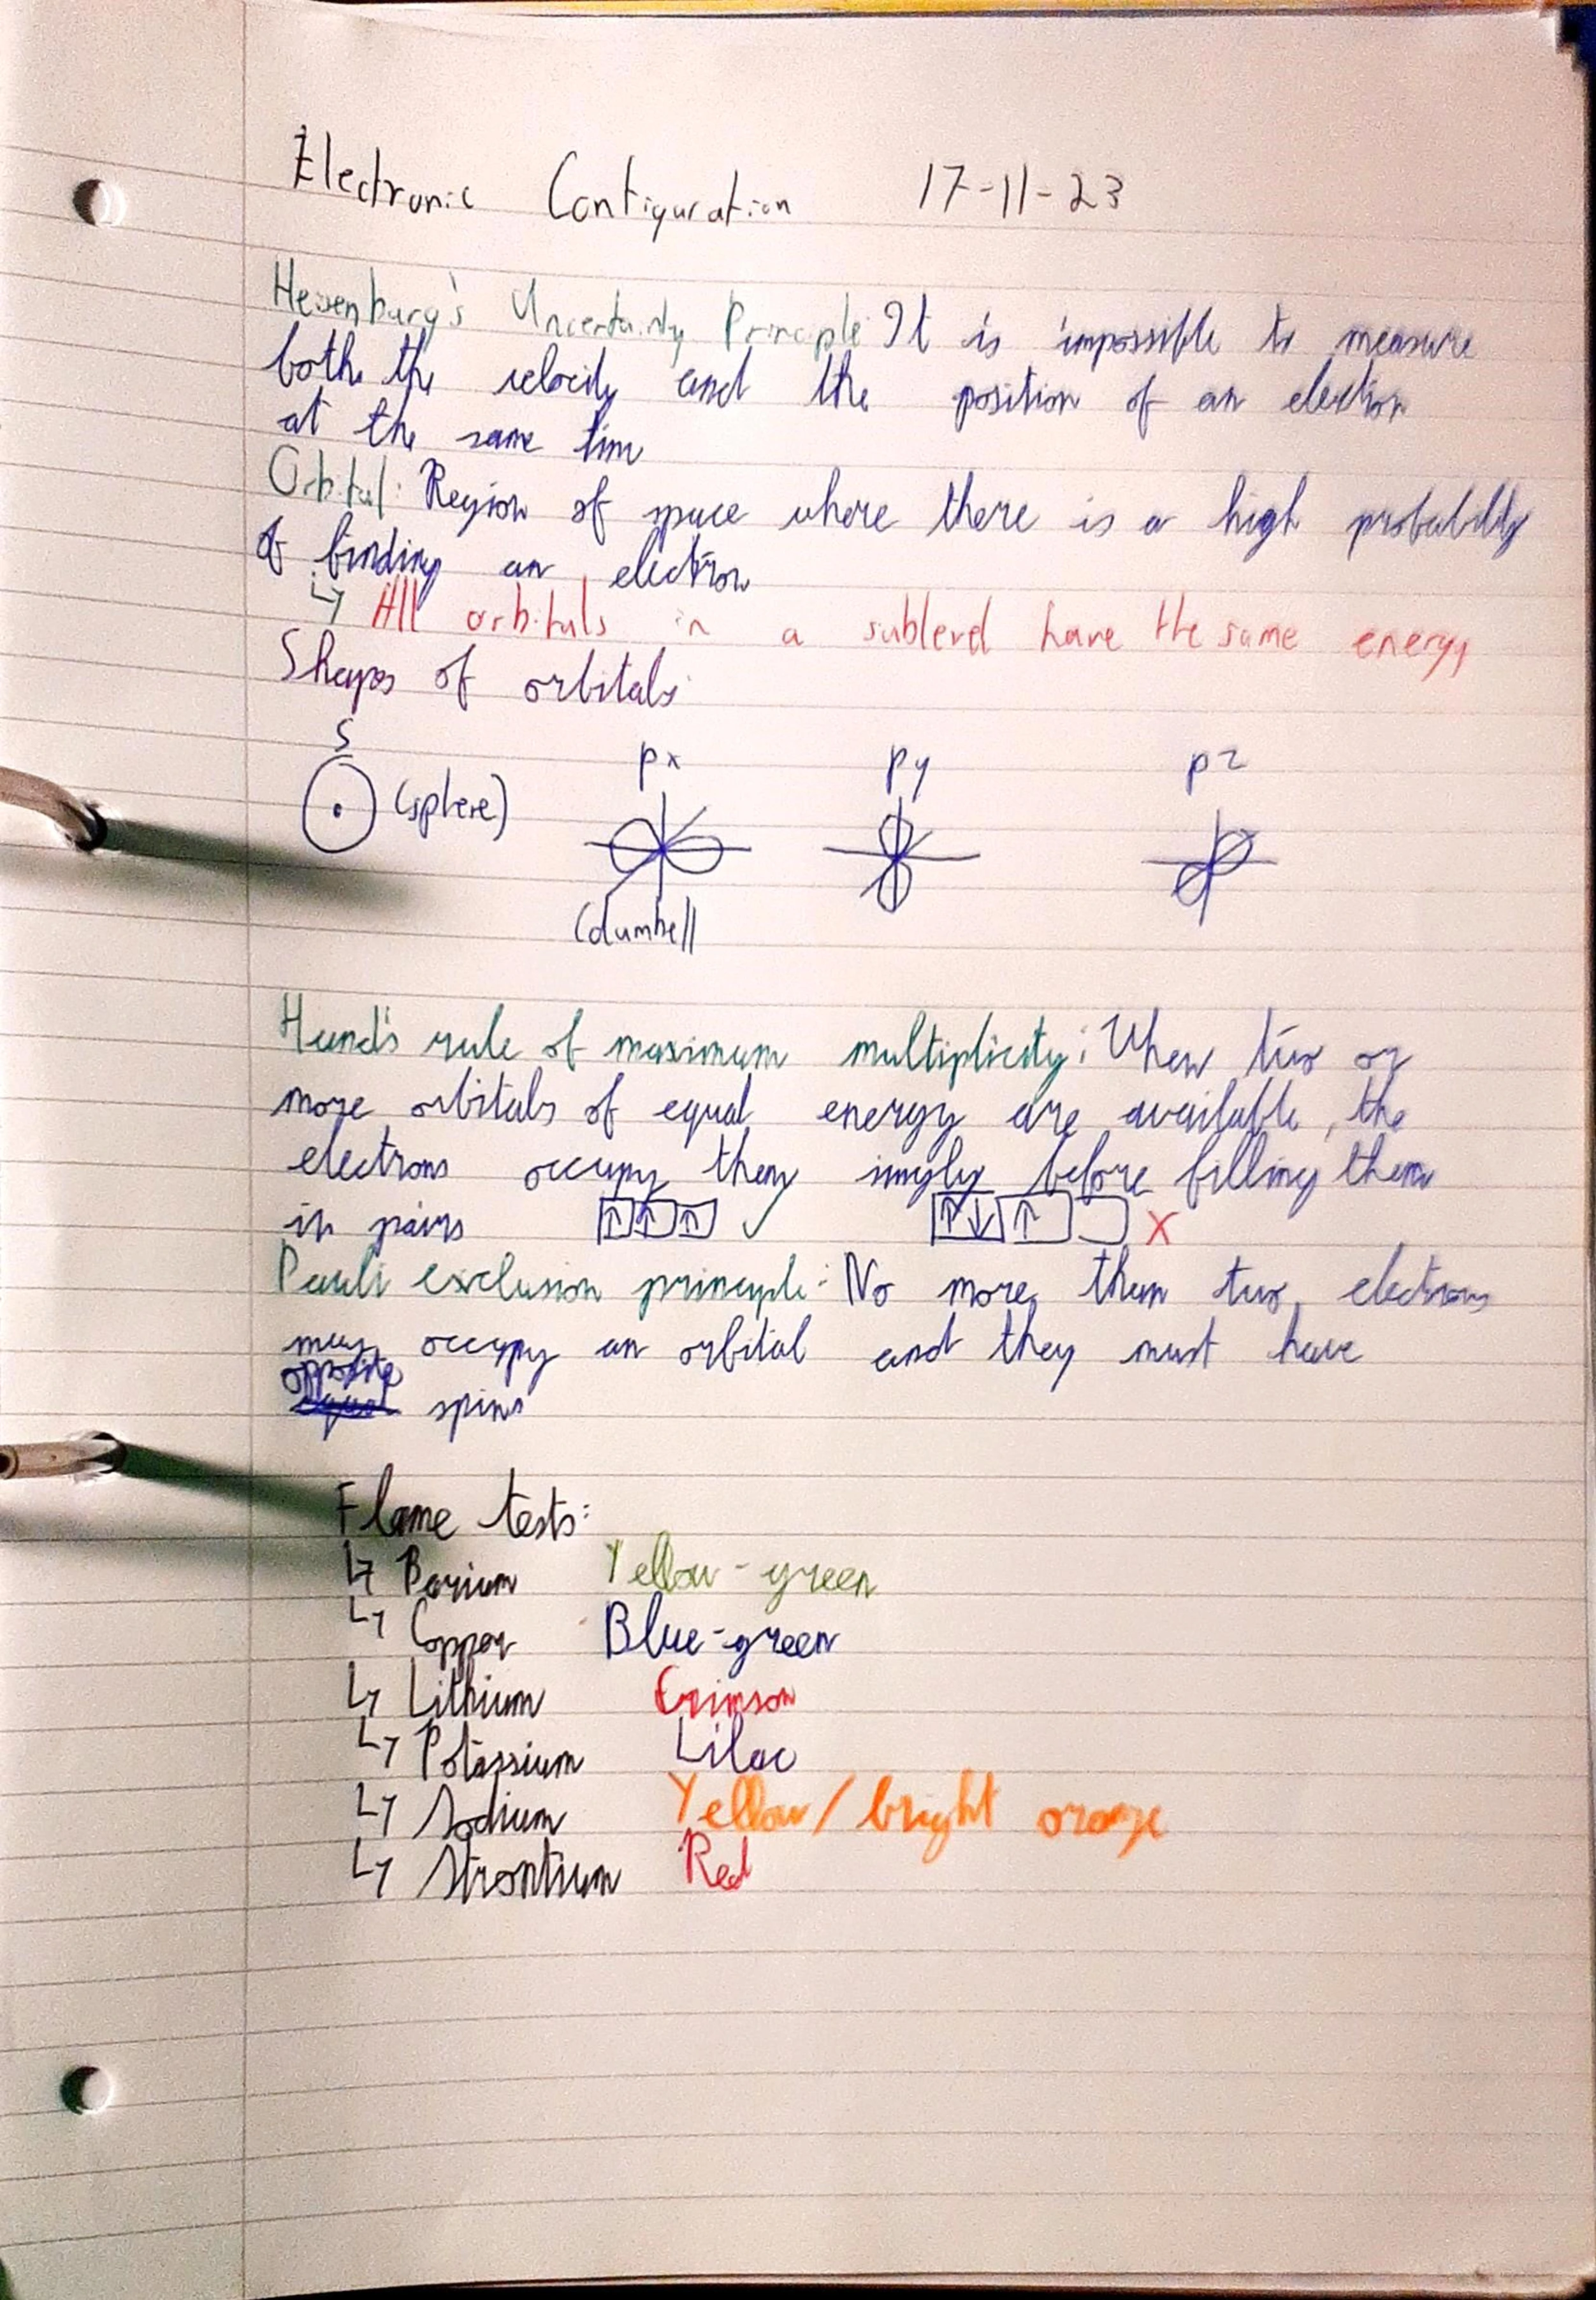 Electronic Configuration 17-11-23
Heisenburg's Uncertainty Principle: It is impossible to measure
both the velocity and the position of an electron
at the same time
Orbital: Region of space where there is a high probability
of finding an electron
↳ All orbitals in a sublevel have the same energy
Shapes of orbitals:
S px py pz
(sphere)
(dumbell
Hund's rule of maximum multiplicity: When two or
more orbitals of equal energy are available, the
electrons occupy them singly before filling them
in pairs ↑ ↑ ↑ ✓ ↑↓ ↑ X
Pauli exclusion principle: No more than two electrons
may occupy an orbital and they must have
opposite
equal spins
Flame tests:
↳ Barium Yellow-green
↳ Copper Blue-green
↳ Lithium Crimson
↳ Potassium Lilac
↳ Sodium Yellow/bright orange
↳ Strontium Red